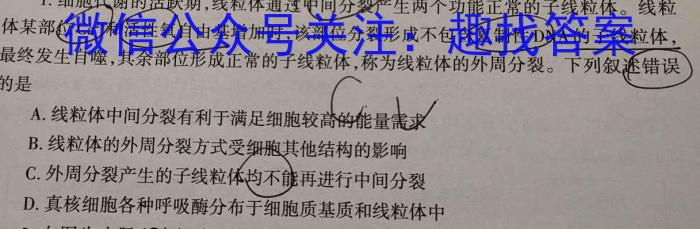 1. 细胞代谢的活跃期,线粒体通过中间分裂产生两个功能正常的子线粒体。线粒
体某部位 活性氧自由基增加时,该部位分裂形成不包 DNA的子线粒体,
微信公众号关注：趣找答案
最终发生自噬,其余部位形成正常的子线粒体,称为线粒体的外周分裂。下列叙述错误
的是
A. 线粒体中间分裂有利于满足细胞较高的能量需求
B. 线粒体的外周分裂方式受细胞其他结构的影响
C. 外周分裂产生的子线粒体均不能再进行中间分裂
D. 真核细胞各种呼吸酶分布于细胞质基质和线粒体中